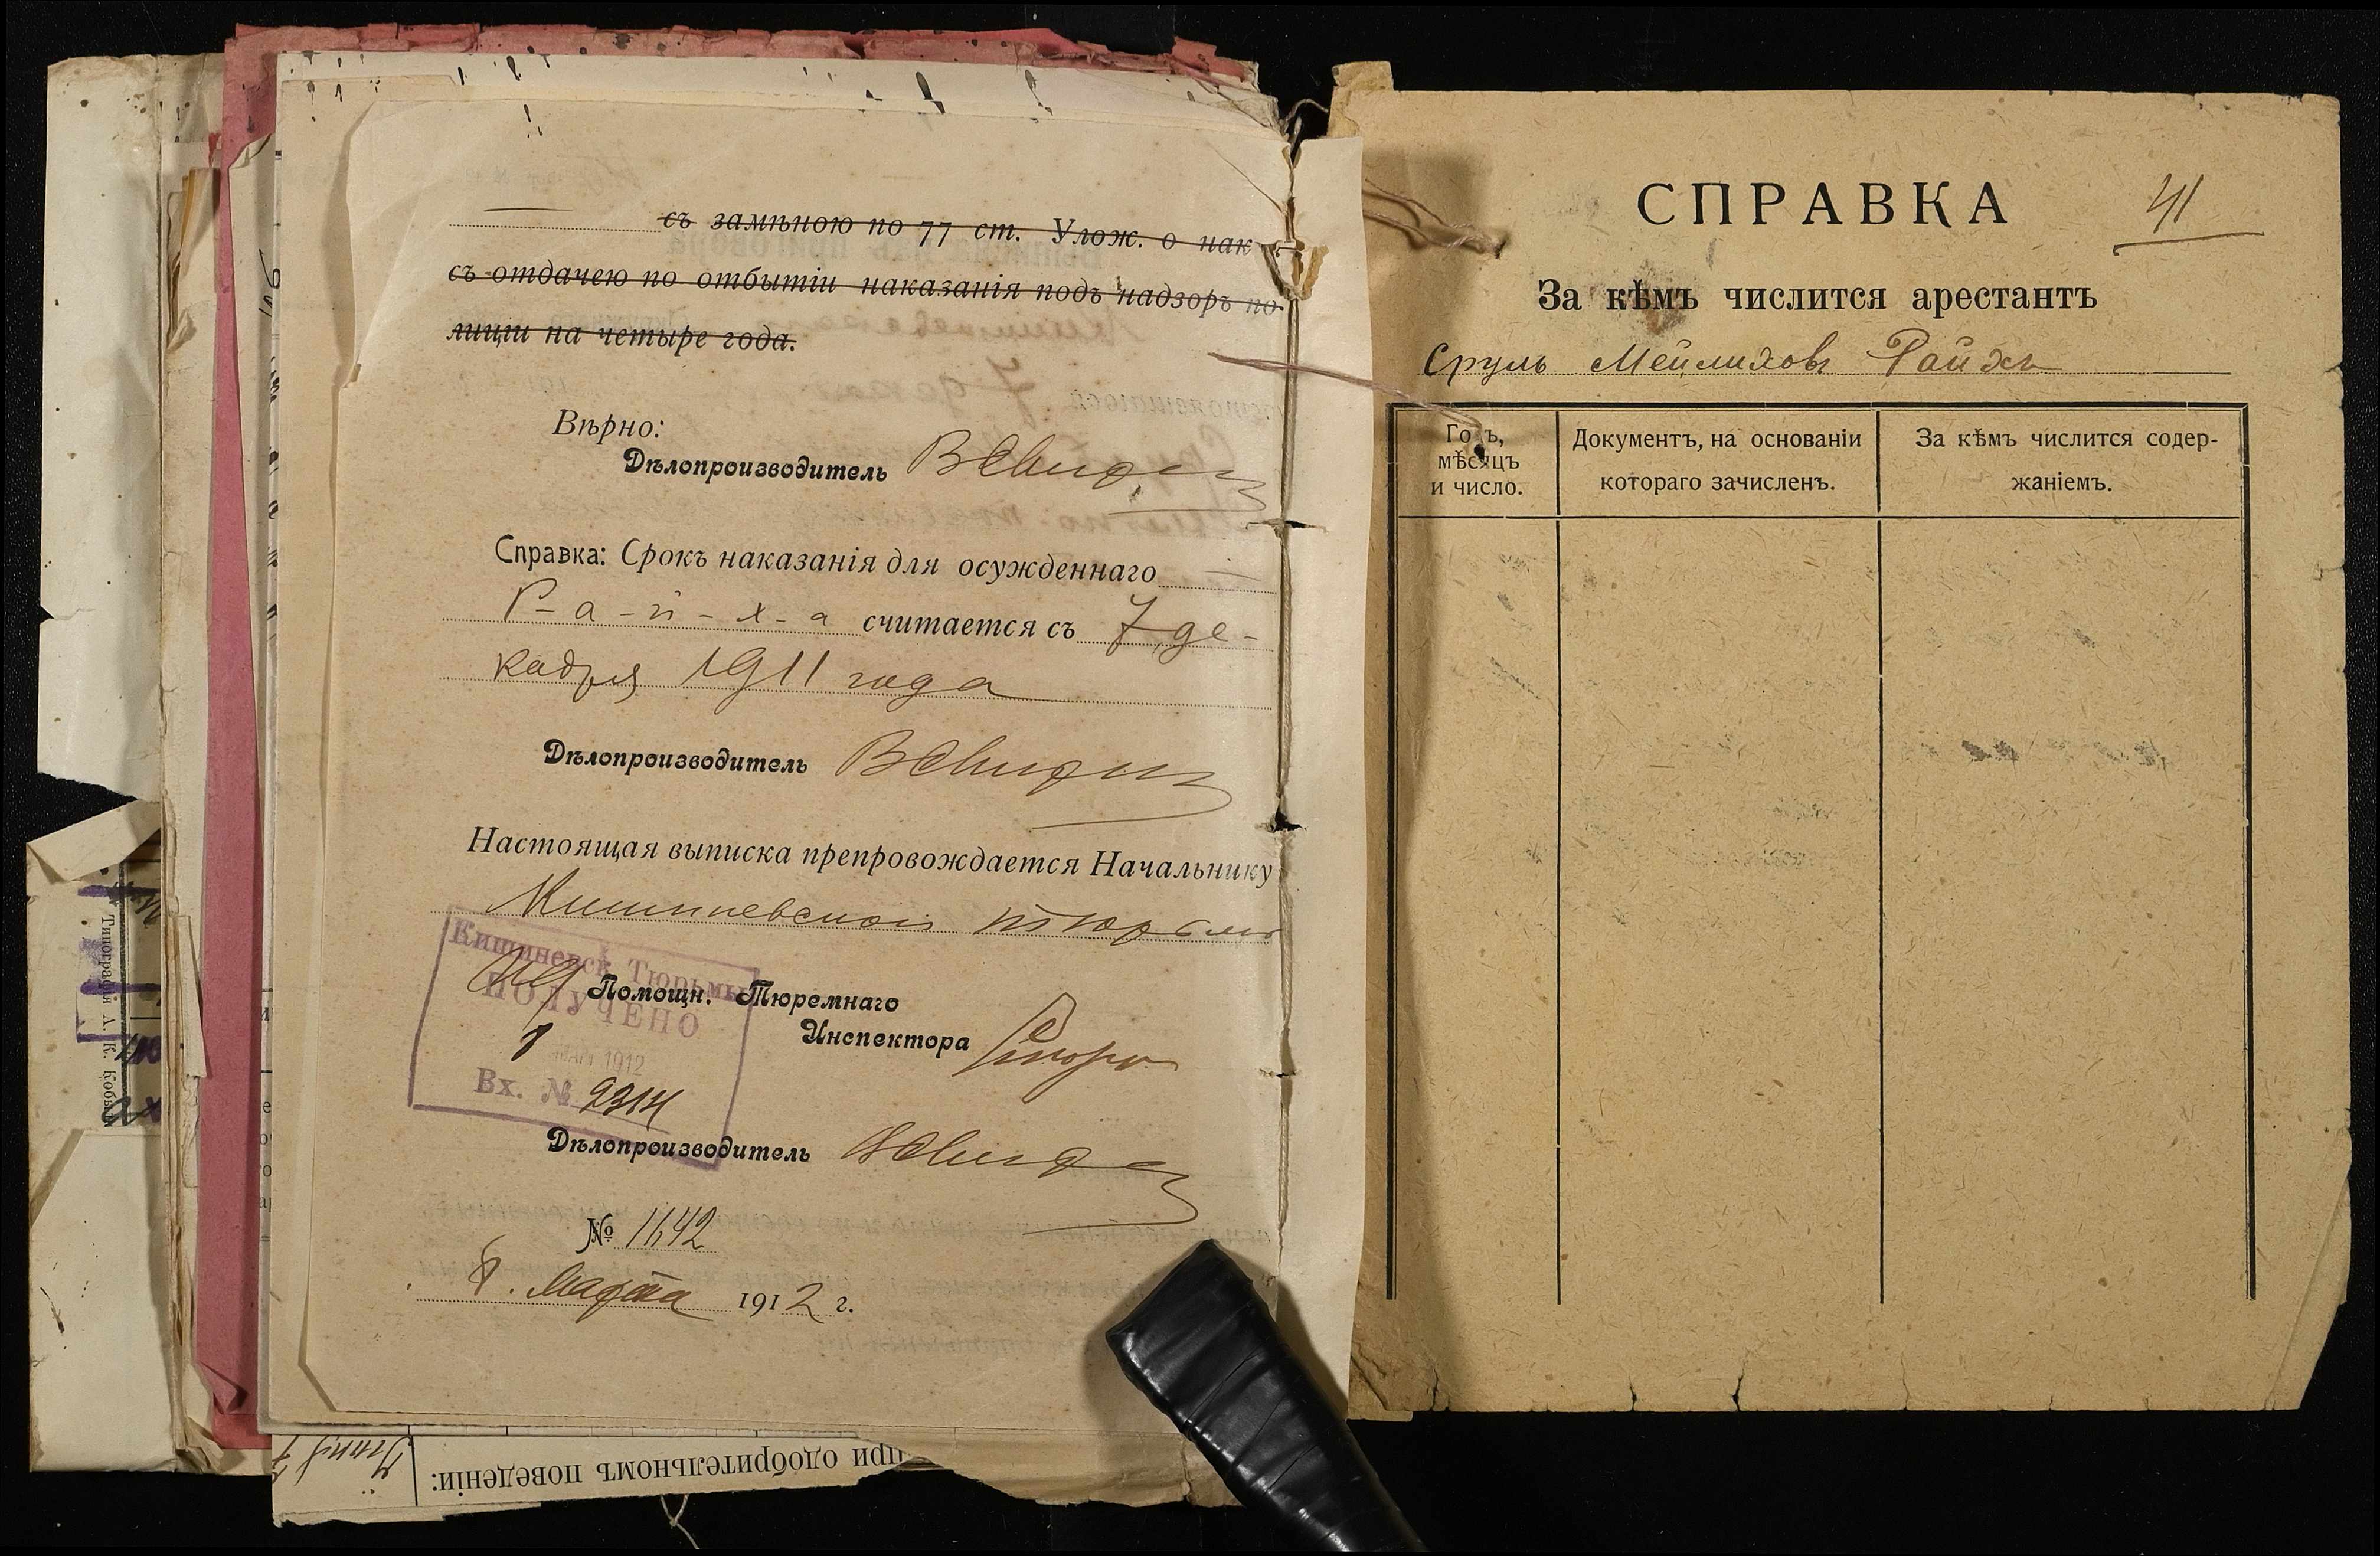 съ замѣною по 77 ст. Улож. о нак
съ отдачею по отбытіи наказанія подъ надзоръ по-
лиціи на четыре года.
Вѣрно:
Дѣлопроизводитель
Справка: Срокъ наказанія для осужденнаго
Р-а-й-х-а считается съ 7 де-
кабря 1911 года
Дѣлопроизводитель
Настоящая выписка препровождается Начальнику
Кишиневской тюрьмы
Кишиневск. Тюрьмы
ПОЛУЧЕНО
8 МАР 1912
Вх. № 2314
Помощн. Тюремнаго
Инспектора
Дѣлопроизводитель
№ 1142
8. Марта 1912 г.
при одобрительномъ поведеніи:
Типографія А. К.
СПРАВКА
41
За кѣмъ числится арестантъ
Сруль Мейлиховъ Райхъ
Годъ,
мѣсяцъ
и число.
Документъ, на основаніи
котораго зачисленъ.
За кѣмъ числится содер-
жаніемъ.